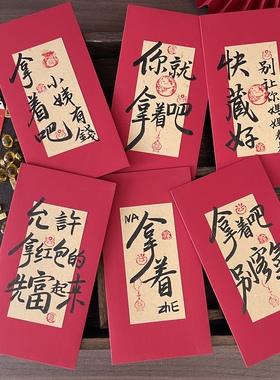 拿着吧
小姨有錢
你就
拿着吧
快藏好
别让你妈妈
允許
拿红包的
先富起来
NA
拿着
zhE
拿着吧
别